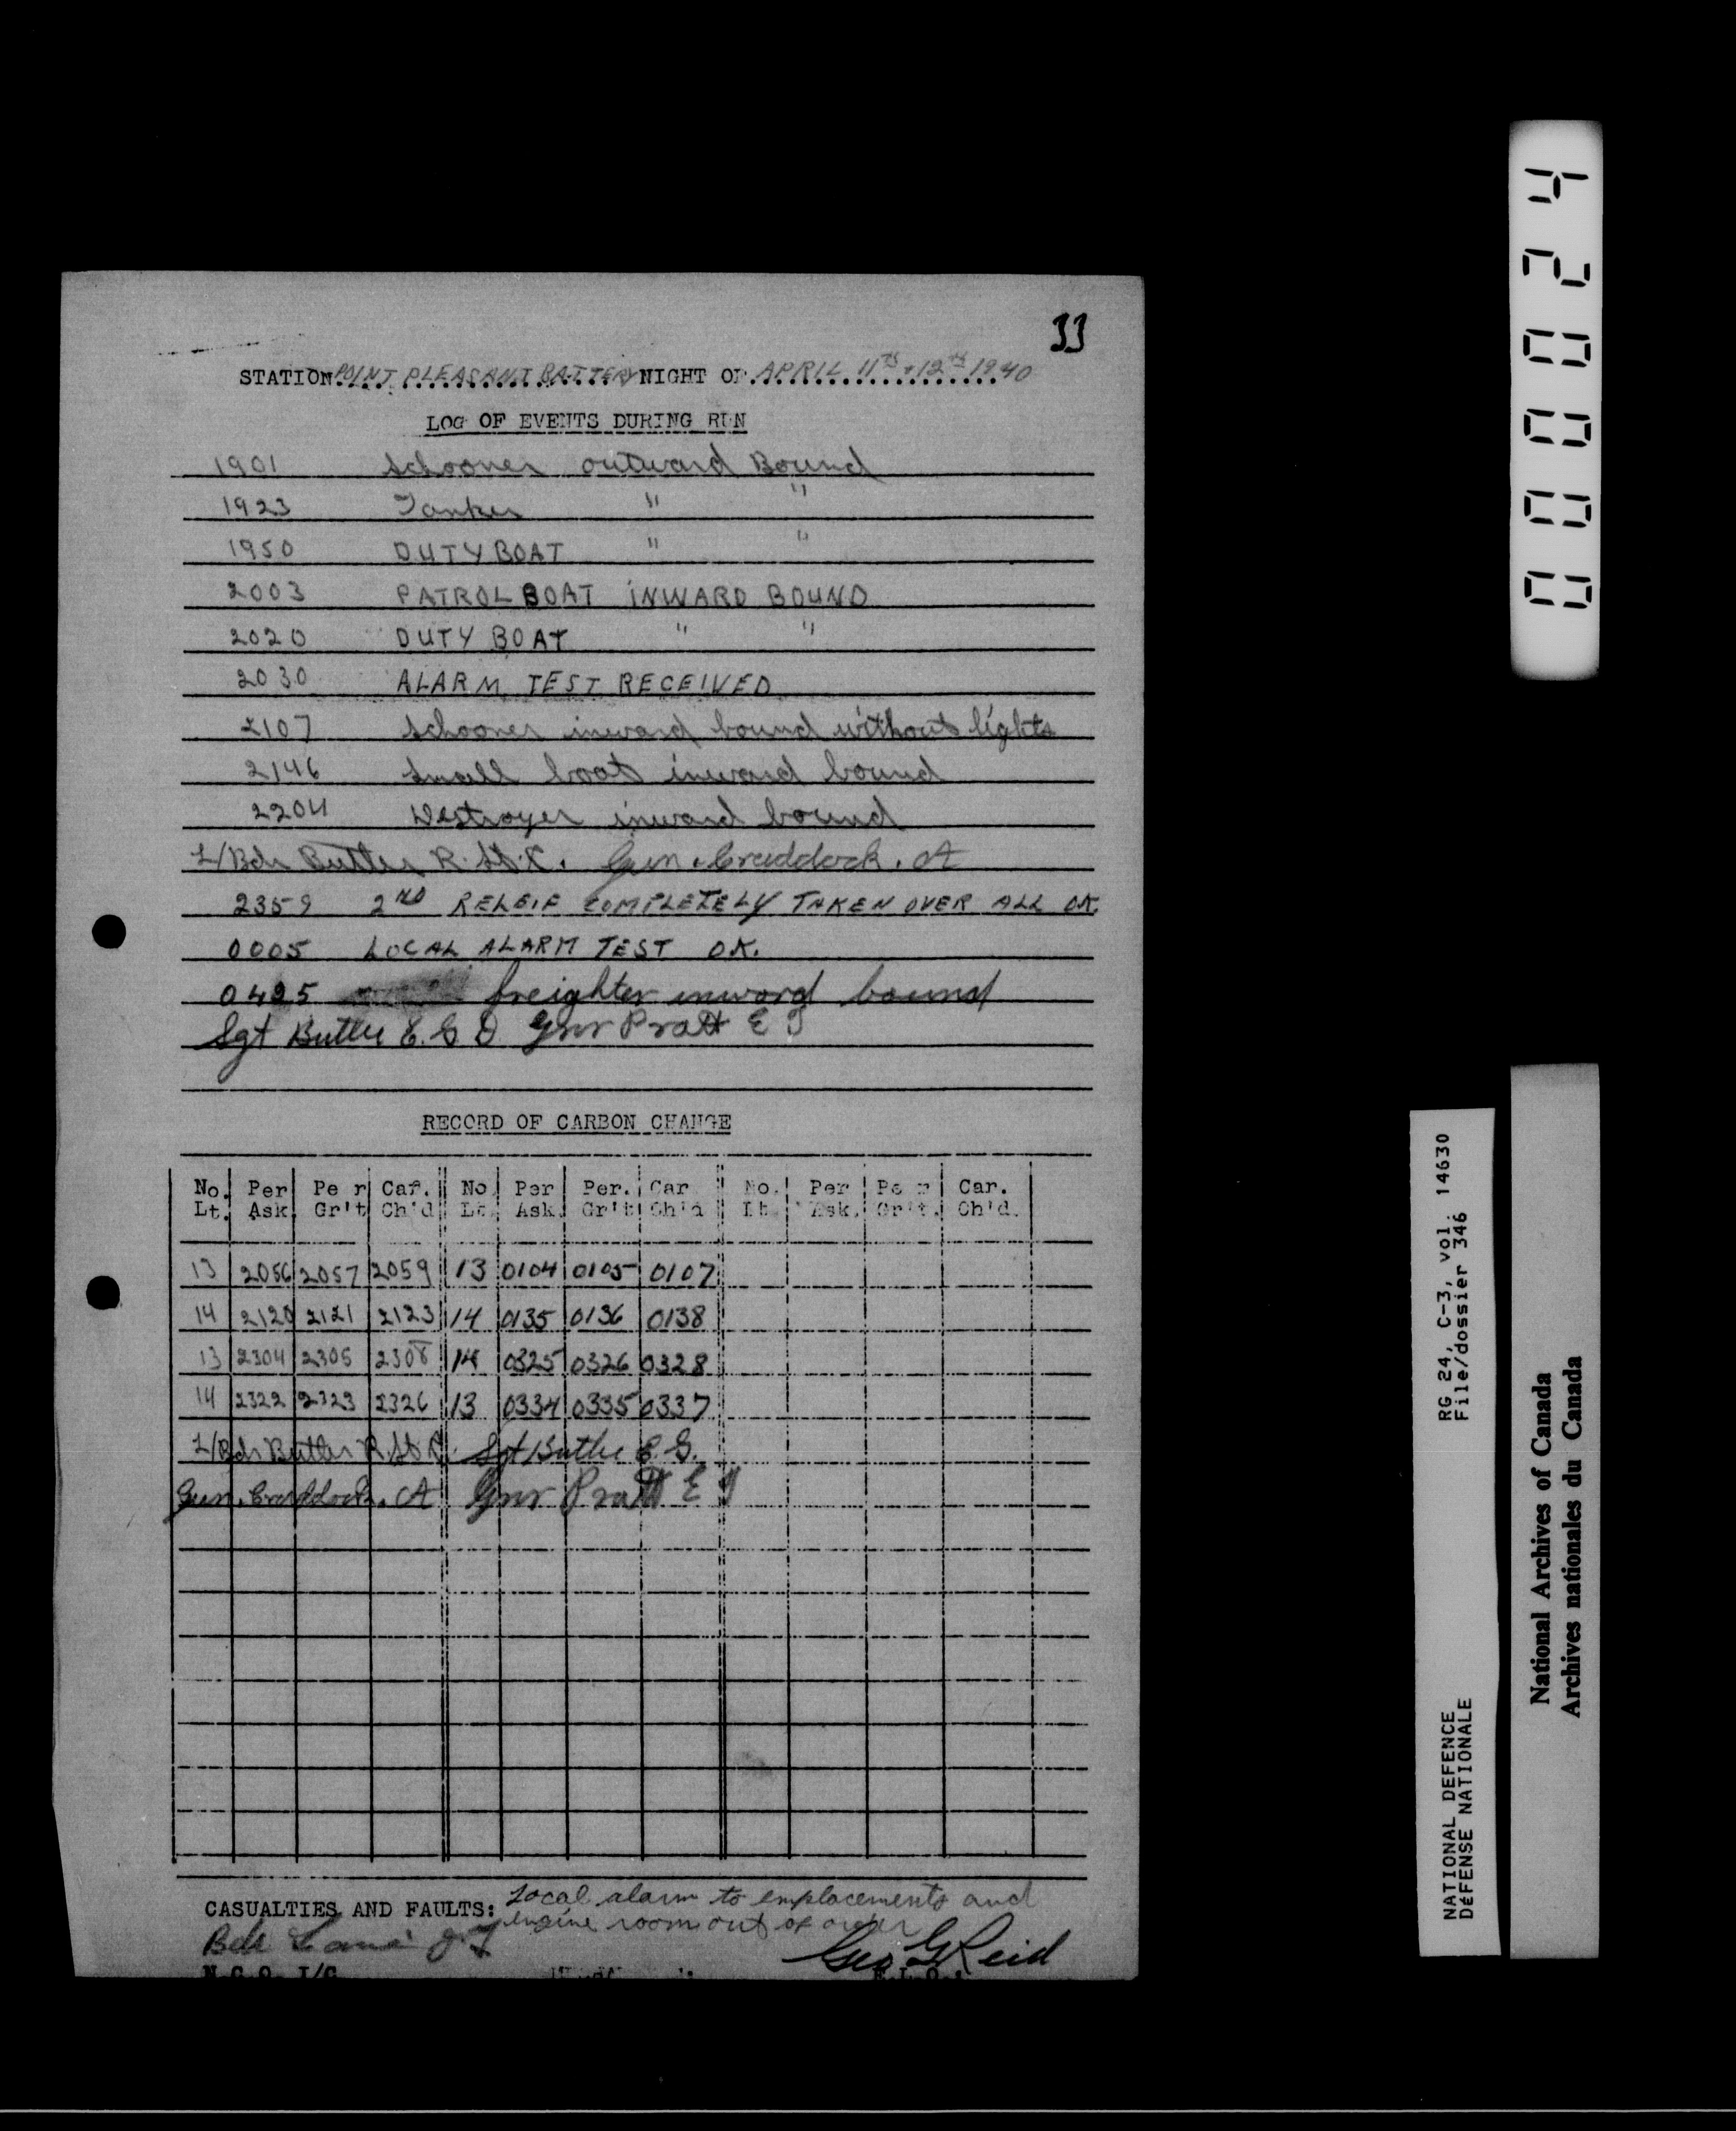 33
STATION POINT PLEASANT BATTERY NIGHT OF APRIL 11th + 12th 1940
LOG OF EVENTS DURING RUN
1901 Schooner outward Bound
1923 Tanker " "
1950 DUTY BOAT " "
2003 PATROL BOAT INWARD BOUND
2020 DUTY BOAT " "
2030 ALARM TEST RECEIVED
2107 Schooner inward bound without lights
2146 Small boat inward bound
2204 Destroyer inward bound
L/Bdr Butler R. St. R. Gun. Craddock. A
2359 2ND RELEIF COMPLETELY TAKEN OVER ALL OK.
0005 LOCAL ALARM TEST OK.
0425 freighter inward bound
Sgt Butler E. G. D Gnr Pratt E J
RECORD OF CARBON CHANGE
No. Per Per Car. No. Per Per. Car No. Per Per Car.
Lt. Ask. Gr't Ch'd Lt. Ask. Gr't Ch'd Lt. Ask. Gr't. Ch'd.
13 2056 2057 2059 13 0104 0105 0107
14 2120 2121 2123 14 0135 0136 0138
13 2304 2305 2308 14 0325 0326 0328
14 2322 2323 2326 13 0334 0335 0337
L/Bdr Butler R. St R. Sgt Butler E. G.
Gun. Craddock. A Gnr Pratt E J
CASUALTIES AND FAULTS: Local alarm to emplacements and
engine room out of order
Geo G Reid
N.C.O. I/C
00024
RG 24, C-3, vol. 14630
File/dossier 346
NATIONAL DEFENCE
DÉFENSE NATIONALE
National Archives of Canada
Archives nationales du Canada